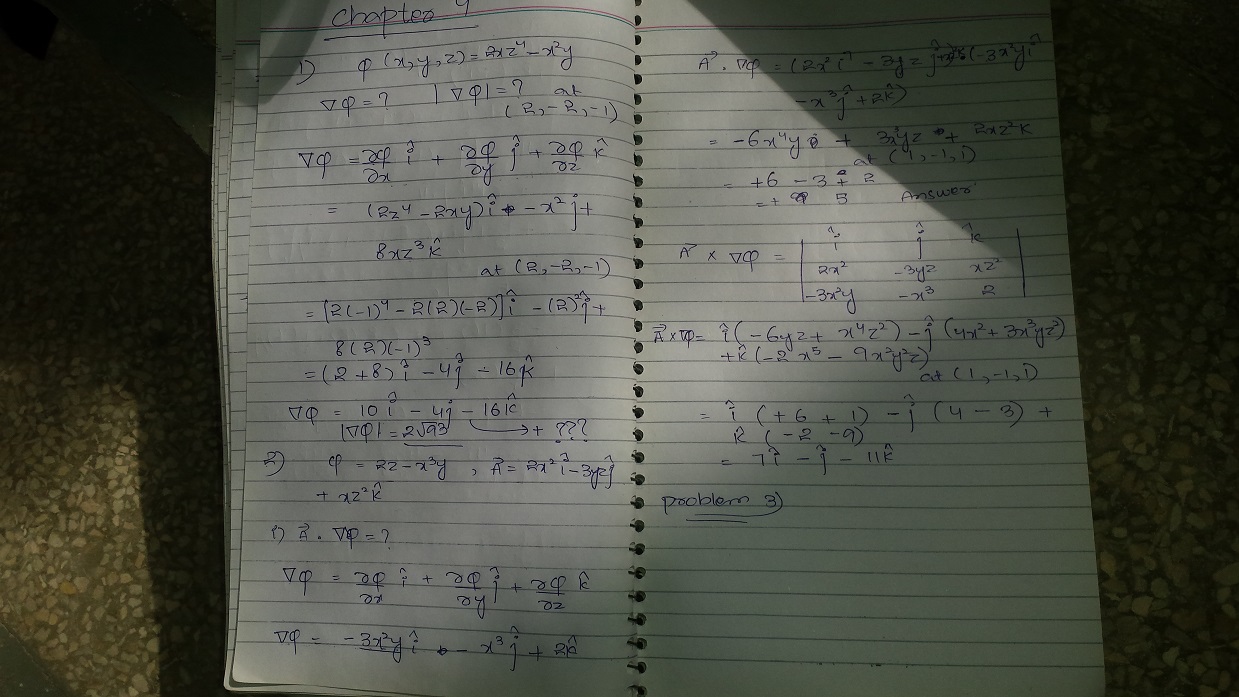 Chapter 4
1) φ(x,y,z) = 2xz⁴ - x²y
∇φ = ? |∇φ| = ? at
(2,-2,-1)
∇φ = ∂φ/∂x î + ∂φ/∂y ĵ + ∂φ/∂z k̂
= (2z⁴ - 2xy)î - x² ĵ +
8xz³ k̂
at (2,-2,-1)
= [2(-1)⁴ - 2(2)(-2)]î - (2)²ĵ +
8(2)(-1)³
= (2+8)î - 4ĵ - 16k̂
∇φ = 10î - 4ĵ - 16k̂
|∇φ| = 2√93 → + ???
2) φ = 2z - x³y , A⃗ = 2x²î - 3yzĵ
+ xz²k̂
1) A⃗ . ∇φ = ?
∇φ = ∂φ/∂x î + ∂φ/∂y ĵ + ∂φ/∂z k̂
∇φ = -3x²y î - x³ ĵ + 2k̂
A⃗ . ∇φ = (2x²î - 3yz ĵ (-3x²yî
- x³ĵ + 2k̂)
= -6x⁴y + 3x³yz + 2xz²k
at (1,-1,1)
= +6 - 3 + 2
= + 5 Answer
A⃗ × ∇φ = | î ĵ k̂ |
2x² -3yz xz²
-3x²y -x³ 2
A⃗ × ∇φ = î(-6yz + x⁴z²) - ĵ(4x² + 3x³yz²)
+ k̂(-2x⁵ - 9x²y²z)
at (1,-1,1)
= î (+6 + 1) - ĵ (4 - 3) +
k̂ (-2 - 9)
= 7î - ĵ - 11k̂
problem 3)